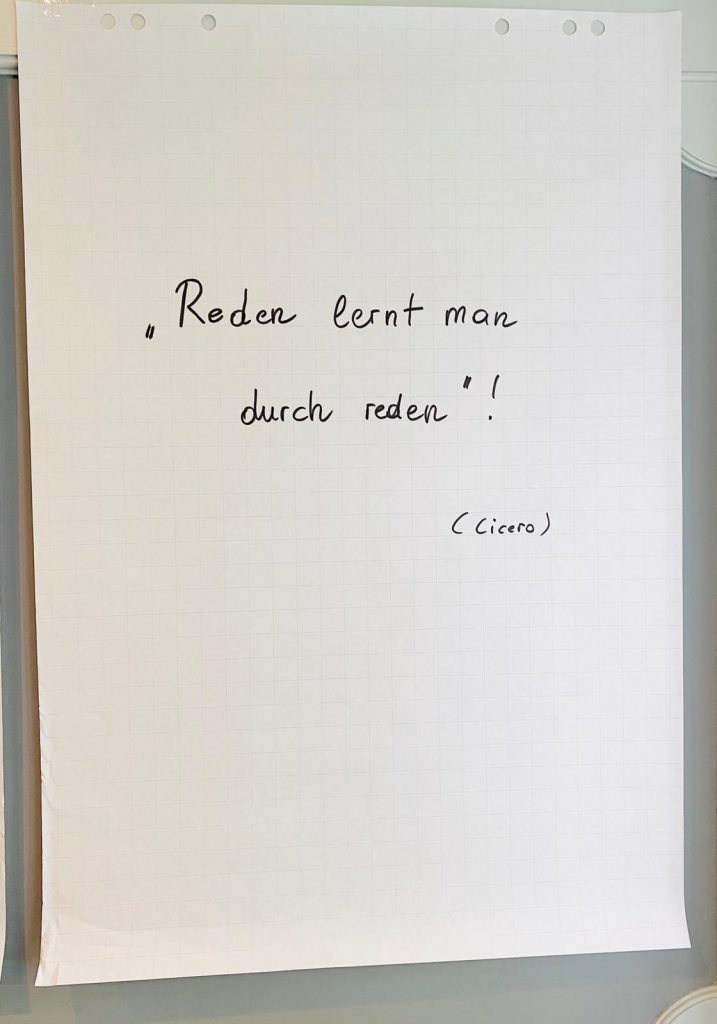 „Reden lernt man
durch reden"!
(Cicero)